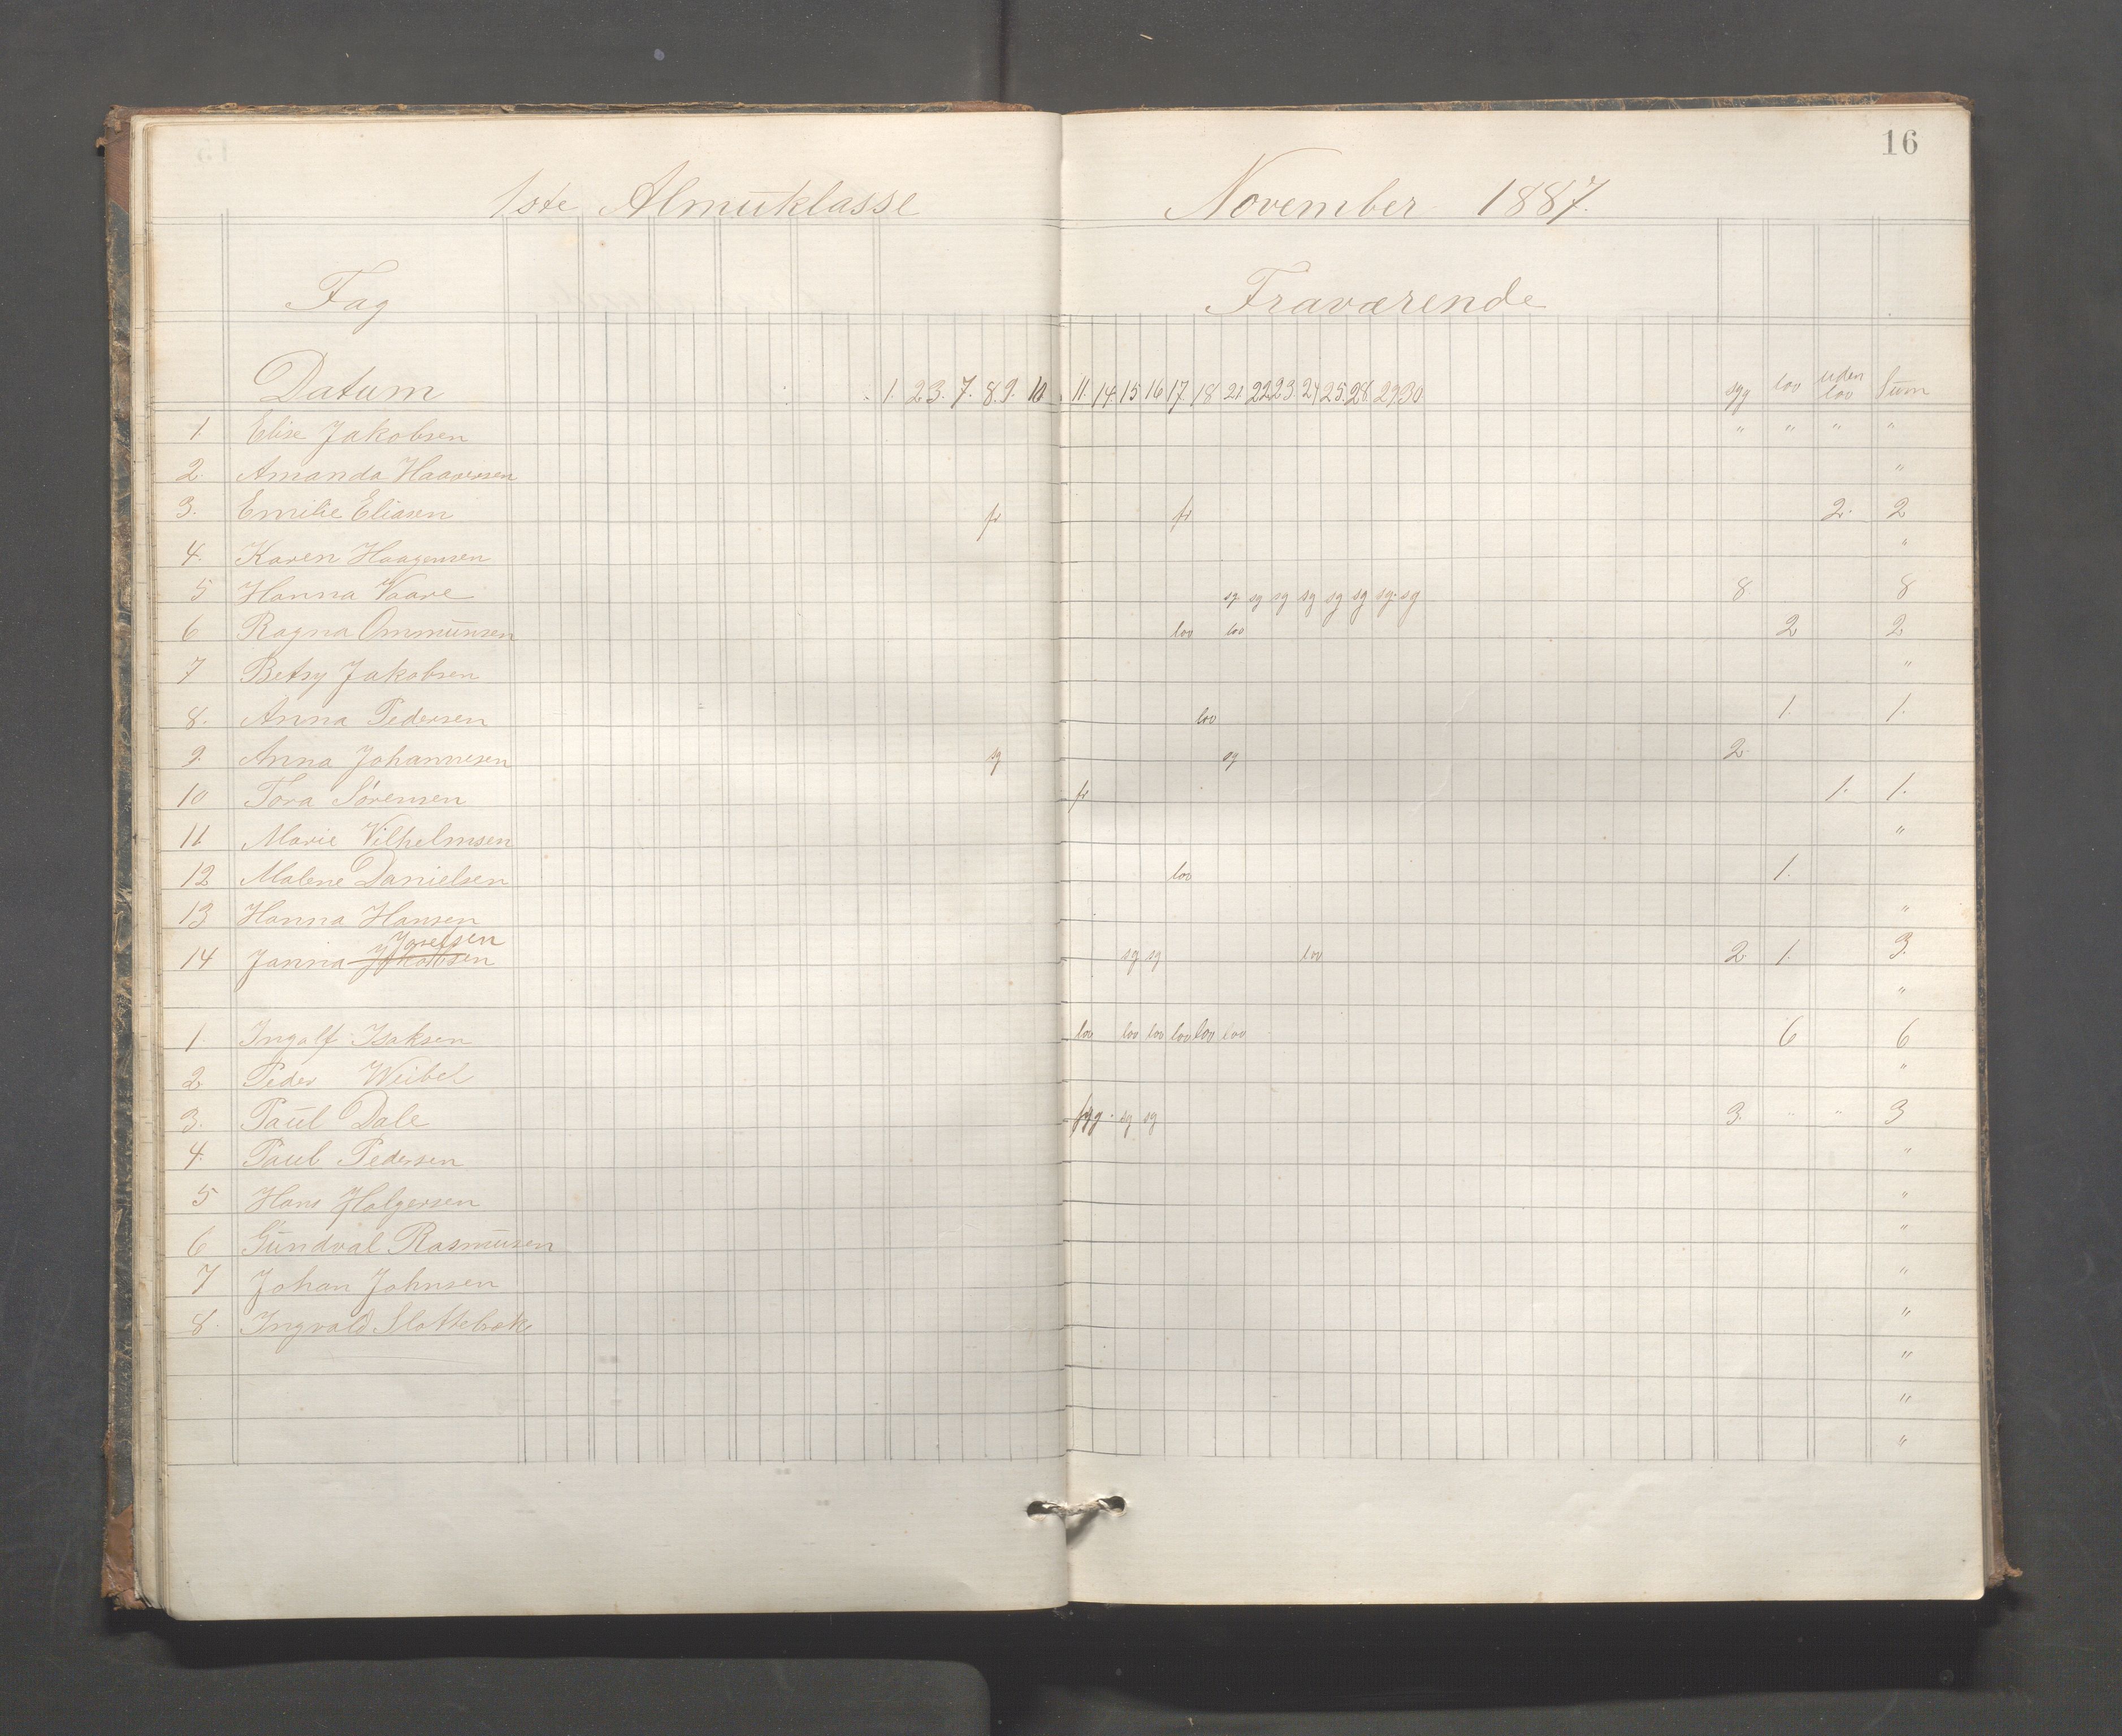 16
1ste Almuklasse November 1887.
Fag Fraværende
Datum 1. 2. 3. 7. 8. 9. 10. 11. 14. 15 16 17. 18 21. 22. 23. 24 25. 28. 29. 30. syg lov uden lov Sum
1. Elise Jakobsen " " " "
2. Amanda Haaversen "
3. Emilie Eliasen fr fr 2. 2
4. Karen Haagensen "
5 Hanna Vaare sg. sg sg sg sg sg sg. sg 8 8
6 Ragna Ommunsen lov lov 2 2
7 Betsy Jakobsen "
8. Anna Pedersen lov 1. 1.
9. Anna Johannesen sg sg 2.
10 Tora Sørensen fr 1. 1.
11 Marie Vilhelmsen "
12 Malene Danielsen lov 1.
13 Hanna Hansen "
14 Janna Jakobsen Josefsen sg sg lov 2 1. 3.
"
1. Ingolf Isaksen lov lov lov lov lov lov 6 6
2 Peder Weibel "
3. Paul Dale syg. sg sg 3. " " 3
4. Paul Pedersen "
5 Hans Holgersen "
6 Gundval Rasmusen "
7 Johan Johnsen "
8. Ingvald Slottebrek "
"
"
"